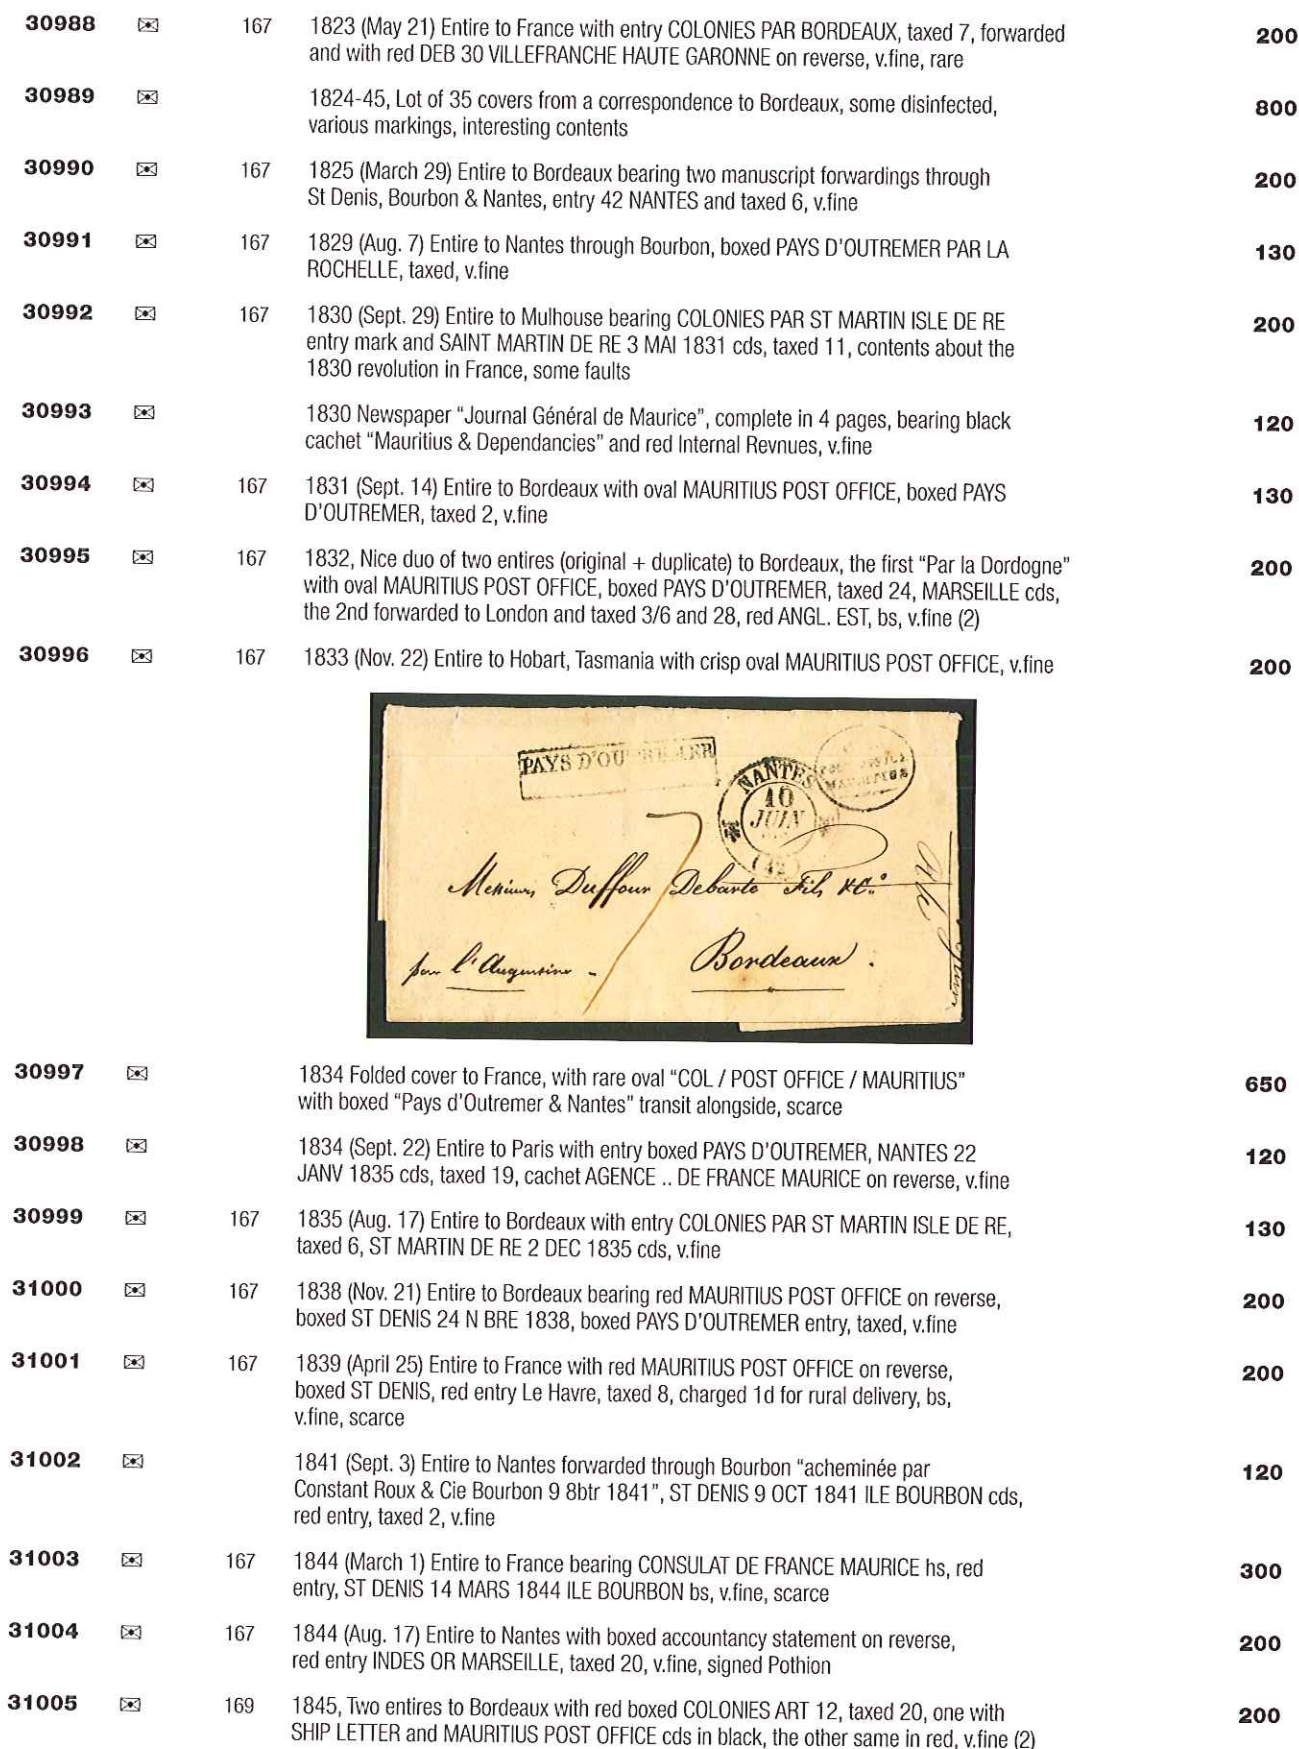 30988 167 1823 (May 21) Entire to France with entry COLONIES PAR BORDEAUX, taxed 7, forwarded 200
and with red DEB 30 VILLEFRANCHE HAUTE GARONNE on reverse, v.fine, rare
30989 1824-45, Lot of 35 covers from a correspondence to Bordeaux, some disinfected, 800
various markings, interesting contents
30990 167 1825 (March 29) Entire to Bordeaux bearing two manuscript forwardings through 200
St Denis, Bourbon & Nantes, entry 42 NANTES and taxed 6, v.fine
30991 167 1829 (Aug. 7) Entire to Nantes through Bourbon, boxed PAYS D'OUTREMER PAR LA 130
ROCHELLE, taxed, v.fine
30992 167 1830 (Sept. 29) Entire to Mulhouse bearing COLONIES PAR ST MARTIN ISLE DE RE 200
entry mark and SAINT MARTIN DE RE 3 MAI 1831 cds, taxed 11, contents about the
1830 revolution in France, some faults
30993 1830 Newspaper “Journal Général de Maurice”, complete in 4 pages, bearing black 120
cachet “Mauritius & Dependancies” and red Internal Revnues, v.fine
30994 167 1831 (Sept. 14) Entire to Bordeaux with oval MAURITIUS POST OFFICE, boxed PAYS 130
D'OUTREMER, taxed 2, v.fine
30995 167 1832, Nice duo of two entires (original + duplicate) to Bordeaux, the first “Par la Dordogne” 200
with oval MAURITIUS POST OFFICE, boxed PAYS D'OUTREMER, taxed 24, MARSEILLE cds,
the 2nd forwarded to London and taxed 3/6 and 28, red ANGL. EST, bs, v.fine (2)
30996 167 1833 (Nov. 22) Entire to Hobart, Tasmania with crisp oval MAURITIUS POST OFFICE, v.fine 200
PAYS D'OUTREMER
NANTES
10
JUIN
(42)
MAURITIUS
7
Messieurs Duffour Debarte Fils & Co.
par l'Augustine - Bordeaux.
30997 1834 Folded cover to France, with rare oval “COL / POST OFFICE / MAURITIUS” 650
with boxed “Pays d'Outremer & Nantes” transit alongside, scarce
30998 1834 (Sept. 22) Entire to Paris with entry boxed PAYS D'OUTREMER, NANTES 22 120
JANV 1835 cds, taxed 19, cachet AGENCE .. DE FRANCE MAURICE on reverse, v.fine
30999 167 1835 (Aug. 17) Entire to Bordeaux with entry COLONIES PAR ST MARTIN ISLE DE RE, 130
taxed 6, ST MARTIN DE RE 2 DEC 1835 cds, v.fine
31000 167 1838 (Nov. 21) Entire to Bordeaux bearing red MAURITIUS POST OFFICE on reverse, 200
boxed ST DENIS 24 N BRE 1838, boxed PAYS D'OUTREMER entry, taxed, v.fine
31001 167 1839 (April 25) Entire to France with red MAURITIUS POST OFFICE on reverse, 200
boxed ST DENIS, red entry Le Havre, taxed 8, charged 1d for rural delivery, bs,
v.fine, scarce
31002 1841 (Sept. 3) Entire to Nantes forwarded through Bourbon “acheminée par 120
Constant Roux & Cie Bourbon 9 8btr 1841”, ST DENIS 9 OCT 1841 ILE BOURBON cds,
red entry, taxed 2, v.fine
31003 167 1844 (March 1) Entire to France bearing CONSULAT DE FRANCE MAURICE hs, red 300
entry, ST DENIS 14 MARS 1844 ILE BOURBON bs, v.fine, scarce
31004 167 1844 (Aug. 17) Entire to Nantes with boxed accountancy statement on reverse, 200
red entry INDES OR MARSEILLE, taxed 20, v.fine, signed Pothion
31005 169 1845, Two entires to Bordeaux with red boxed COLONIES ART 12, taxed 20, one with 200
SHIP LETTER and MAURITIUS POST OFFICE cds in black, the other same in red, v.fine (2)